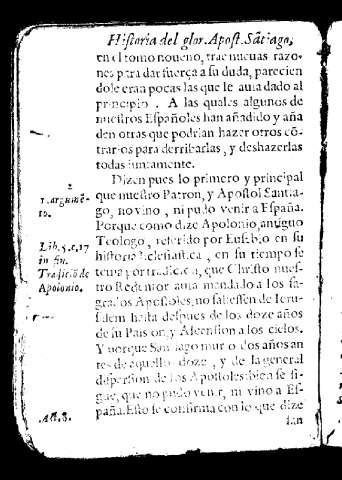 Historia del glor. Apost. Sãtiago,
en el tomo noueno, trae nueuas razo-
nes para dar fuerça a su duda, parecien
dole eran pocas las que le auia dado al
principio. A las quales algunos de
nuestros Españoles han añadido y aña
den otras que podrian hazer otros cõ-
trarios para derribarlas, y deshazerlas
todas juntamente.
2
1. argumẽ-
to.
Dizen pues lo primero y principal
que nuestro Patron, y Apostol Santia-
go, no vino, ni pudo venir a España.
Porque como dize Apolonio, antiguo
Teologo, referido por Eusebio en su
historia Eclesiastica, en su tiempo se
tenia por tradicion, que Christo nues-
tro Redentor auia mandado a los sa-
grados Apostoles, no saliessen de Ieru-
salem hasta despues de los doze años
de su Passion y Ascension a los cielos.
Lib. 5. c. 17
in fin.
Tradiciõ de
Apolonio.
Y porque Santiago murio dos años an
tes de aquellos doze, y de la general
dispersion de los Apostoles: bien se si-
gue, que no pudo venir, ni vino a Es-
paña. Esto se confirma con lo que dize
Act. 8.
san